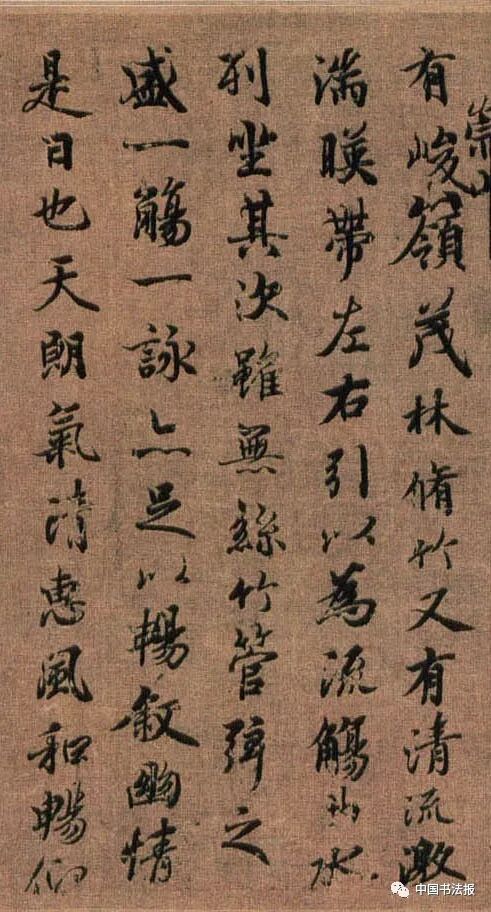 崇山
有峻嶺茂林脩竹又有清流激
湍暎帶左右引以為流觴曲水
列坐其次雖無絲竹管弦之
盛一觴一詠亦足以暢敘幽情
是日也天朗氣清惠風和暢仰
中国书法报